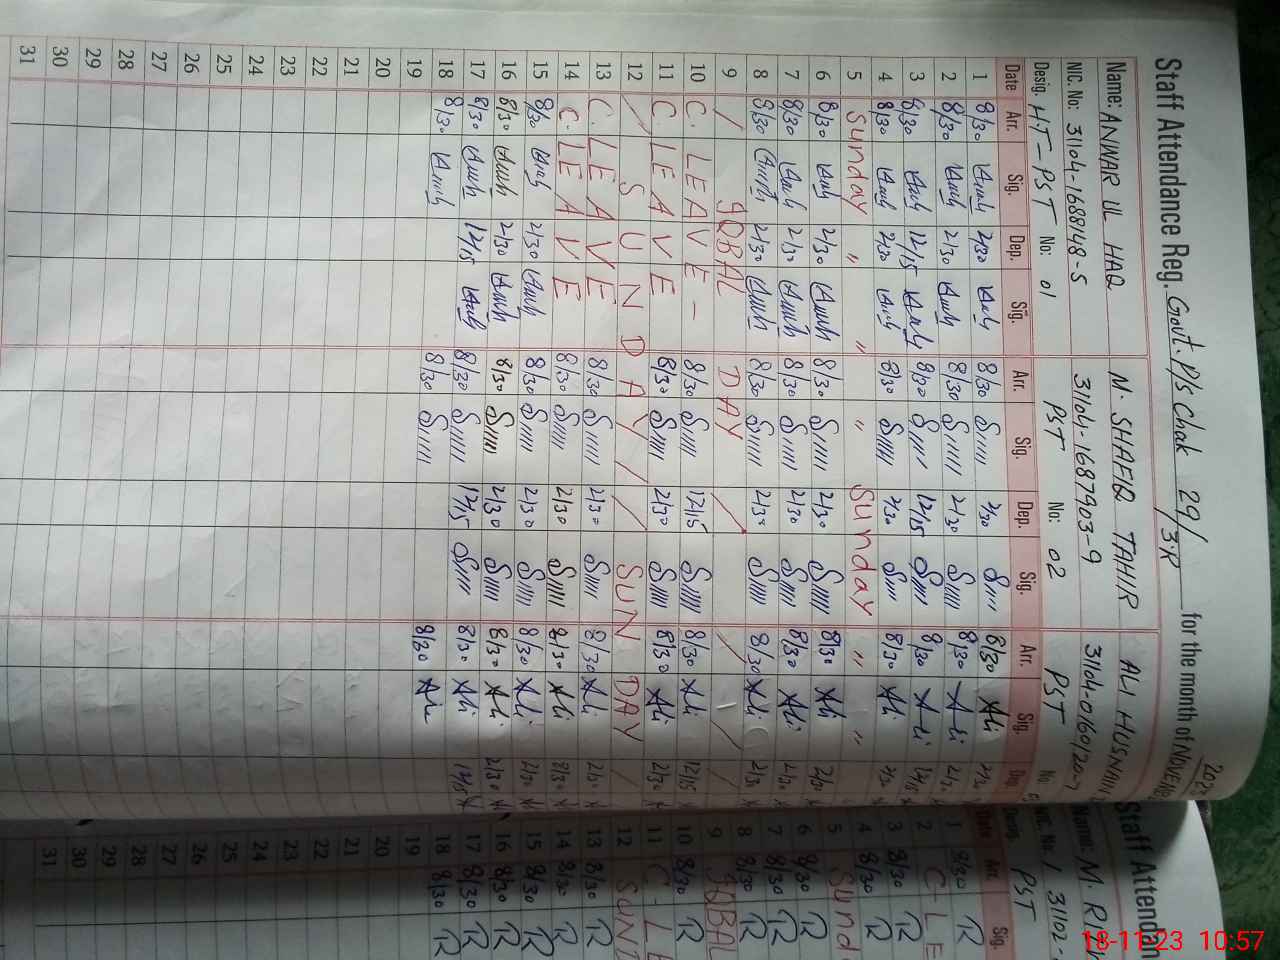 Staff Attendance Reg. Govt. P/S Chak 29/3R for the month of
Name: ANWAR UL HAQ M. SHAFIQ TAHIR ALI HUSNAIN
NIC. No: 31104-1688148-5 31104-1687903-9
Desig. HT-PST No: 01 PST No: 02 PST No.
Date Arr. Sig. Dep. Sig. Arr. Sig. Dep. Sig. Arr. Sig. Dep.
1 8/30 2/30 8/30 2/30 8/30 Ali 2/30
2 8/30 2/30 8/30 2/30 8/30 Ali 2/30
3 8/30 12/15 8/30 12/15 8/30 Ali 12/15
4 8/30 2/30 8/30 2/30 8/30 Ali 2/30
5 Sunday " " " Sunday " "
6 8/30 2/30 8/30 2/30 8/30 Ali 2/30
7 8/30 2/30 8/30 2/30 8/30 Ali 2/30
8 8/30 2/30 8/30 2/30 8/30 Ali 2/30
9 / IQBAL DAY / / /
10 C. LEAVE - 8/30 12/15 8/30 Ali 12/15
11 C. LEAVE 8/30 2/30 8/30 Ali 2/30
12 / SUNDAY / / SUNDAY /
13 C. LEAVE 8/30 2/30 8/30 Ali 2/30
14 C. LEAVE 8/30 2/30 8/30 Ali 8/30
15 8/30 2/30 8/30 2/30 8/30 Ali 2/30
16 8/30 2/30 8/30 2/30 8/30 Ali 2/30
17 8/30 12/15 8/30 12/15 8/30 Ali 12/15
18 8/30 8/30 8/30 Ali
19
20
21
22
23
24
25
26
27
28
29
30
31
Staff Attendan
Name: M.
NIC. No: 31102-
Desig. PST
Date Arr. Sig.
1 8/30 R
2 C-LE
3 8/30 R
4 8/30 R
5 Sund
6 8/30 R
7 8/30 R
8 8/30 R
9 IQBAL
10 8/30 R
11 C-LE
12 SUND
13 8/30 R
14 8/30 R
15 8/30 R
16 8/30 R
17 8/30 R
18 8/30 R
19
20
21
22
23
24
25
26
27
28
29
30
31
18-11-23 10:57